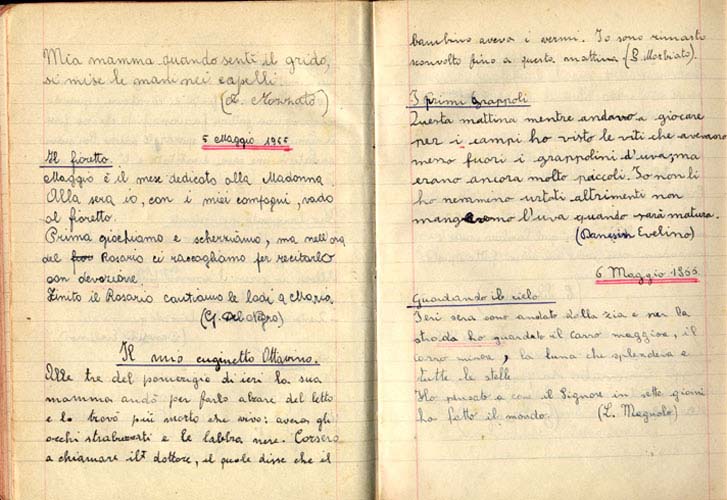 Mia mamma quando sentì il grido,
si mise le mani nei capelli.
(L. Mozzato)
5 Maggio 1955
Il fioretto
Maggio è il mese dedicato alla Madonna
Alla sera io, con i miei compagni, vado
al fioretto.
Prima giochiamo e scherziamo, ma nell'ora
del Rosario ci raccogliamo per recitarlo
con devozione.
Finito il Rosario cantiamo le lodi a Maria.
(G. Dal Negro)
Il mio cuginetto Ottavino.
Alle tre del pomerigio di ieri la sua
mamma andò per farlo alzare del letto
e lo trovò più morto che vivo: aveva gli
occhi strabuzzati e le labbra nere. Corsero
a chiamare il dottore, il quale disse che il
bambino aveva i vermi. Io sono rimasto
sconvolto fino a questa mattina (S. Morbiato).
I primi grappoli
Questa mattina mentre andavo a giocare
per i campi ho visto le viti che avevano
messo fuori i grappolini d'uva, ma
erano ancora molto piccoli. Io non li
ho nemmeno urtati altrimenti non
mangeremo l'uva quando sarà matura.
(Danesin Evelino)
6 Maggio 1955
Guardando il cielo
Ieri sera sono andato dalla zia e per la
strada ho guardato il carro maggiore, il
carro minore, la luna che splendeva e
tutte le stelle
Ho pensato a come il Signore in sette giorni
ha fatto il mondo. (L. Magnolo)